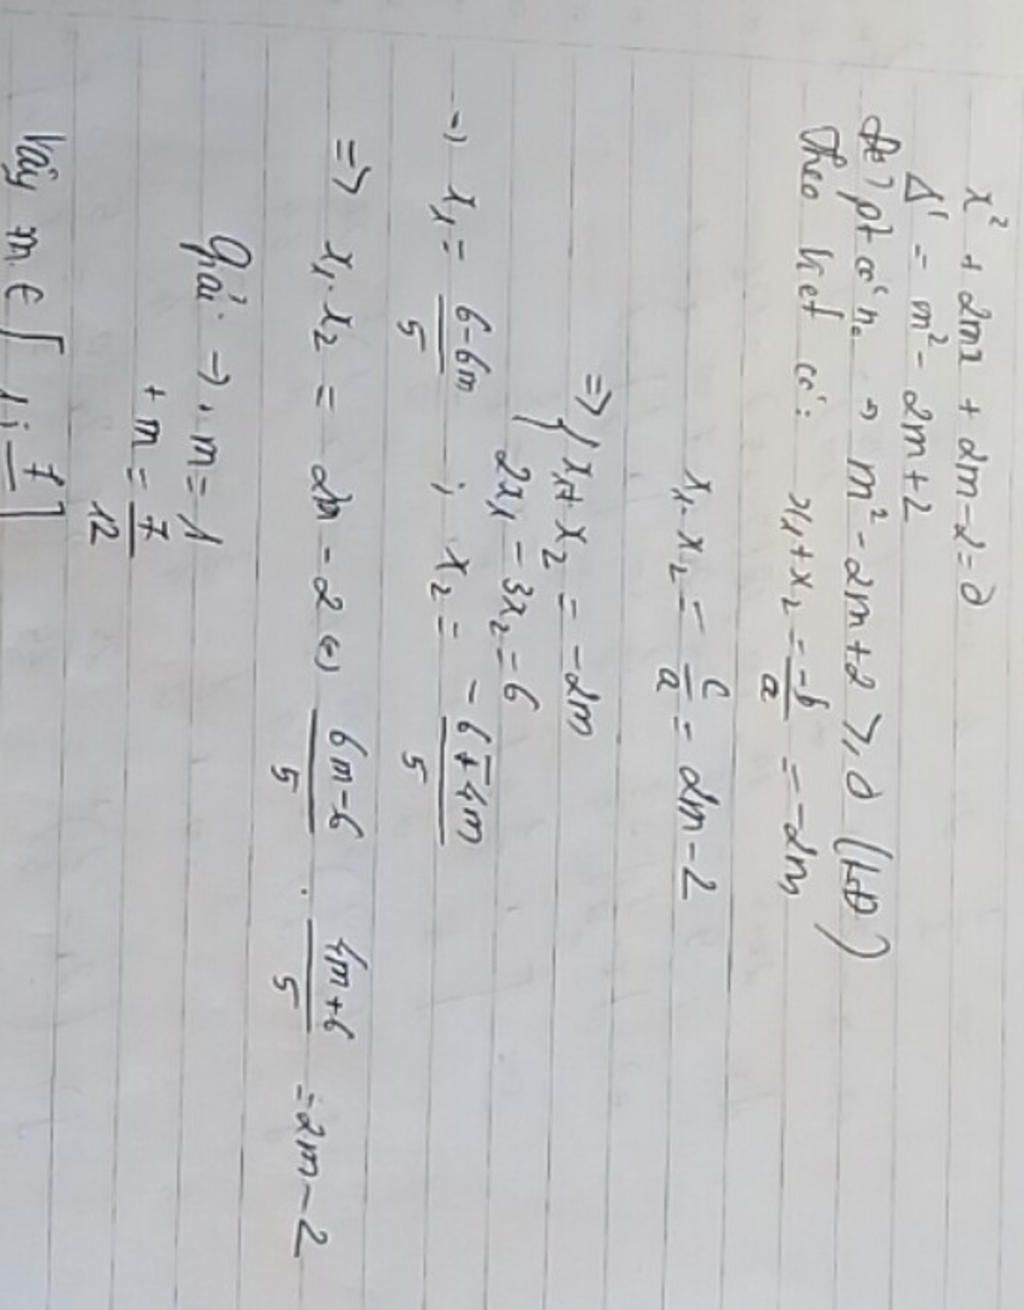 x² + 2mx + 2m-2=0
Δ' = m² - 2m+2
Để pt có n₀ → m² - 2m+2 ≥ 0 (LĐ)
Theo Viet có: x₁+x₂ = -b/a = -2m
x₁.x₂ = c/a = 2m-2
=> { x₁+x₂ = -2m
2x₁ - 3x₂ = 6
→ x₁ = (6-6m)/5 ; x₂ = -(6+4m)/5
=> x₁.x₂ = 2m-2 (=) (6m-6)/5 . (4m+6)/5 = 2m-2
Giải → + m = 1
+ m = 7/12
Vậy m ∈ [ 1; 7